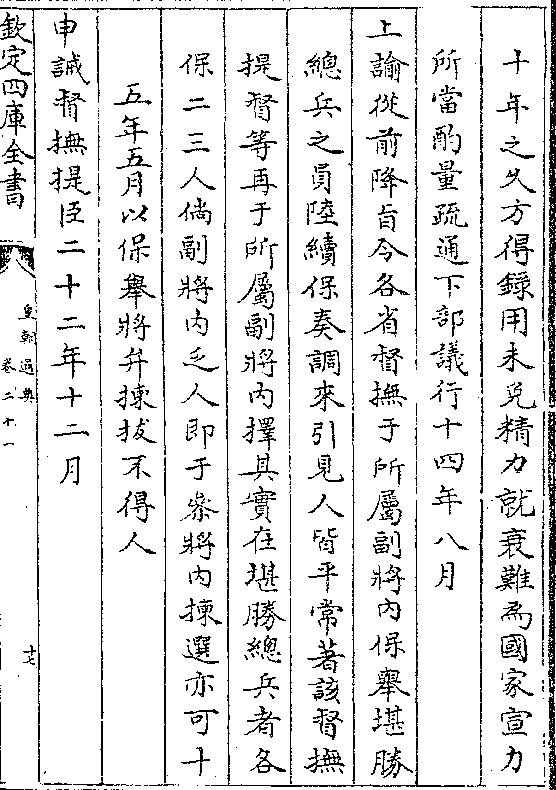 十年之久方得錄用未免精力就衰難爲國家宣力
所當酌量疏通下部議行十四年八月
上諭從前降旨令各省督撫于所屬副將內保舉堪勝
總兵之員陸續保奏調來引見人皆平常著該督撫
提督等再于所屬副將內擇其實在堪勝總兵者各
保二三人倘副將內乏人即于叅將內揀選亦可十
五年五月以保舉將弁揀拔不得人
申誡督撫提臣二十二年十二月
欽定四庫全書
皇朝通典
卷二十一